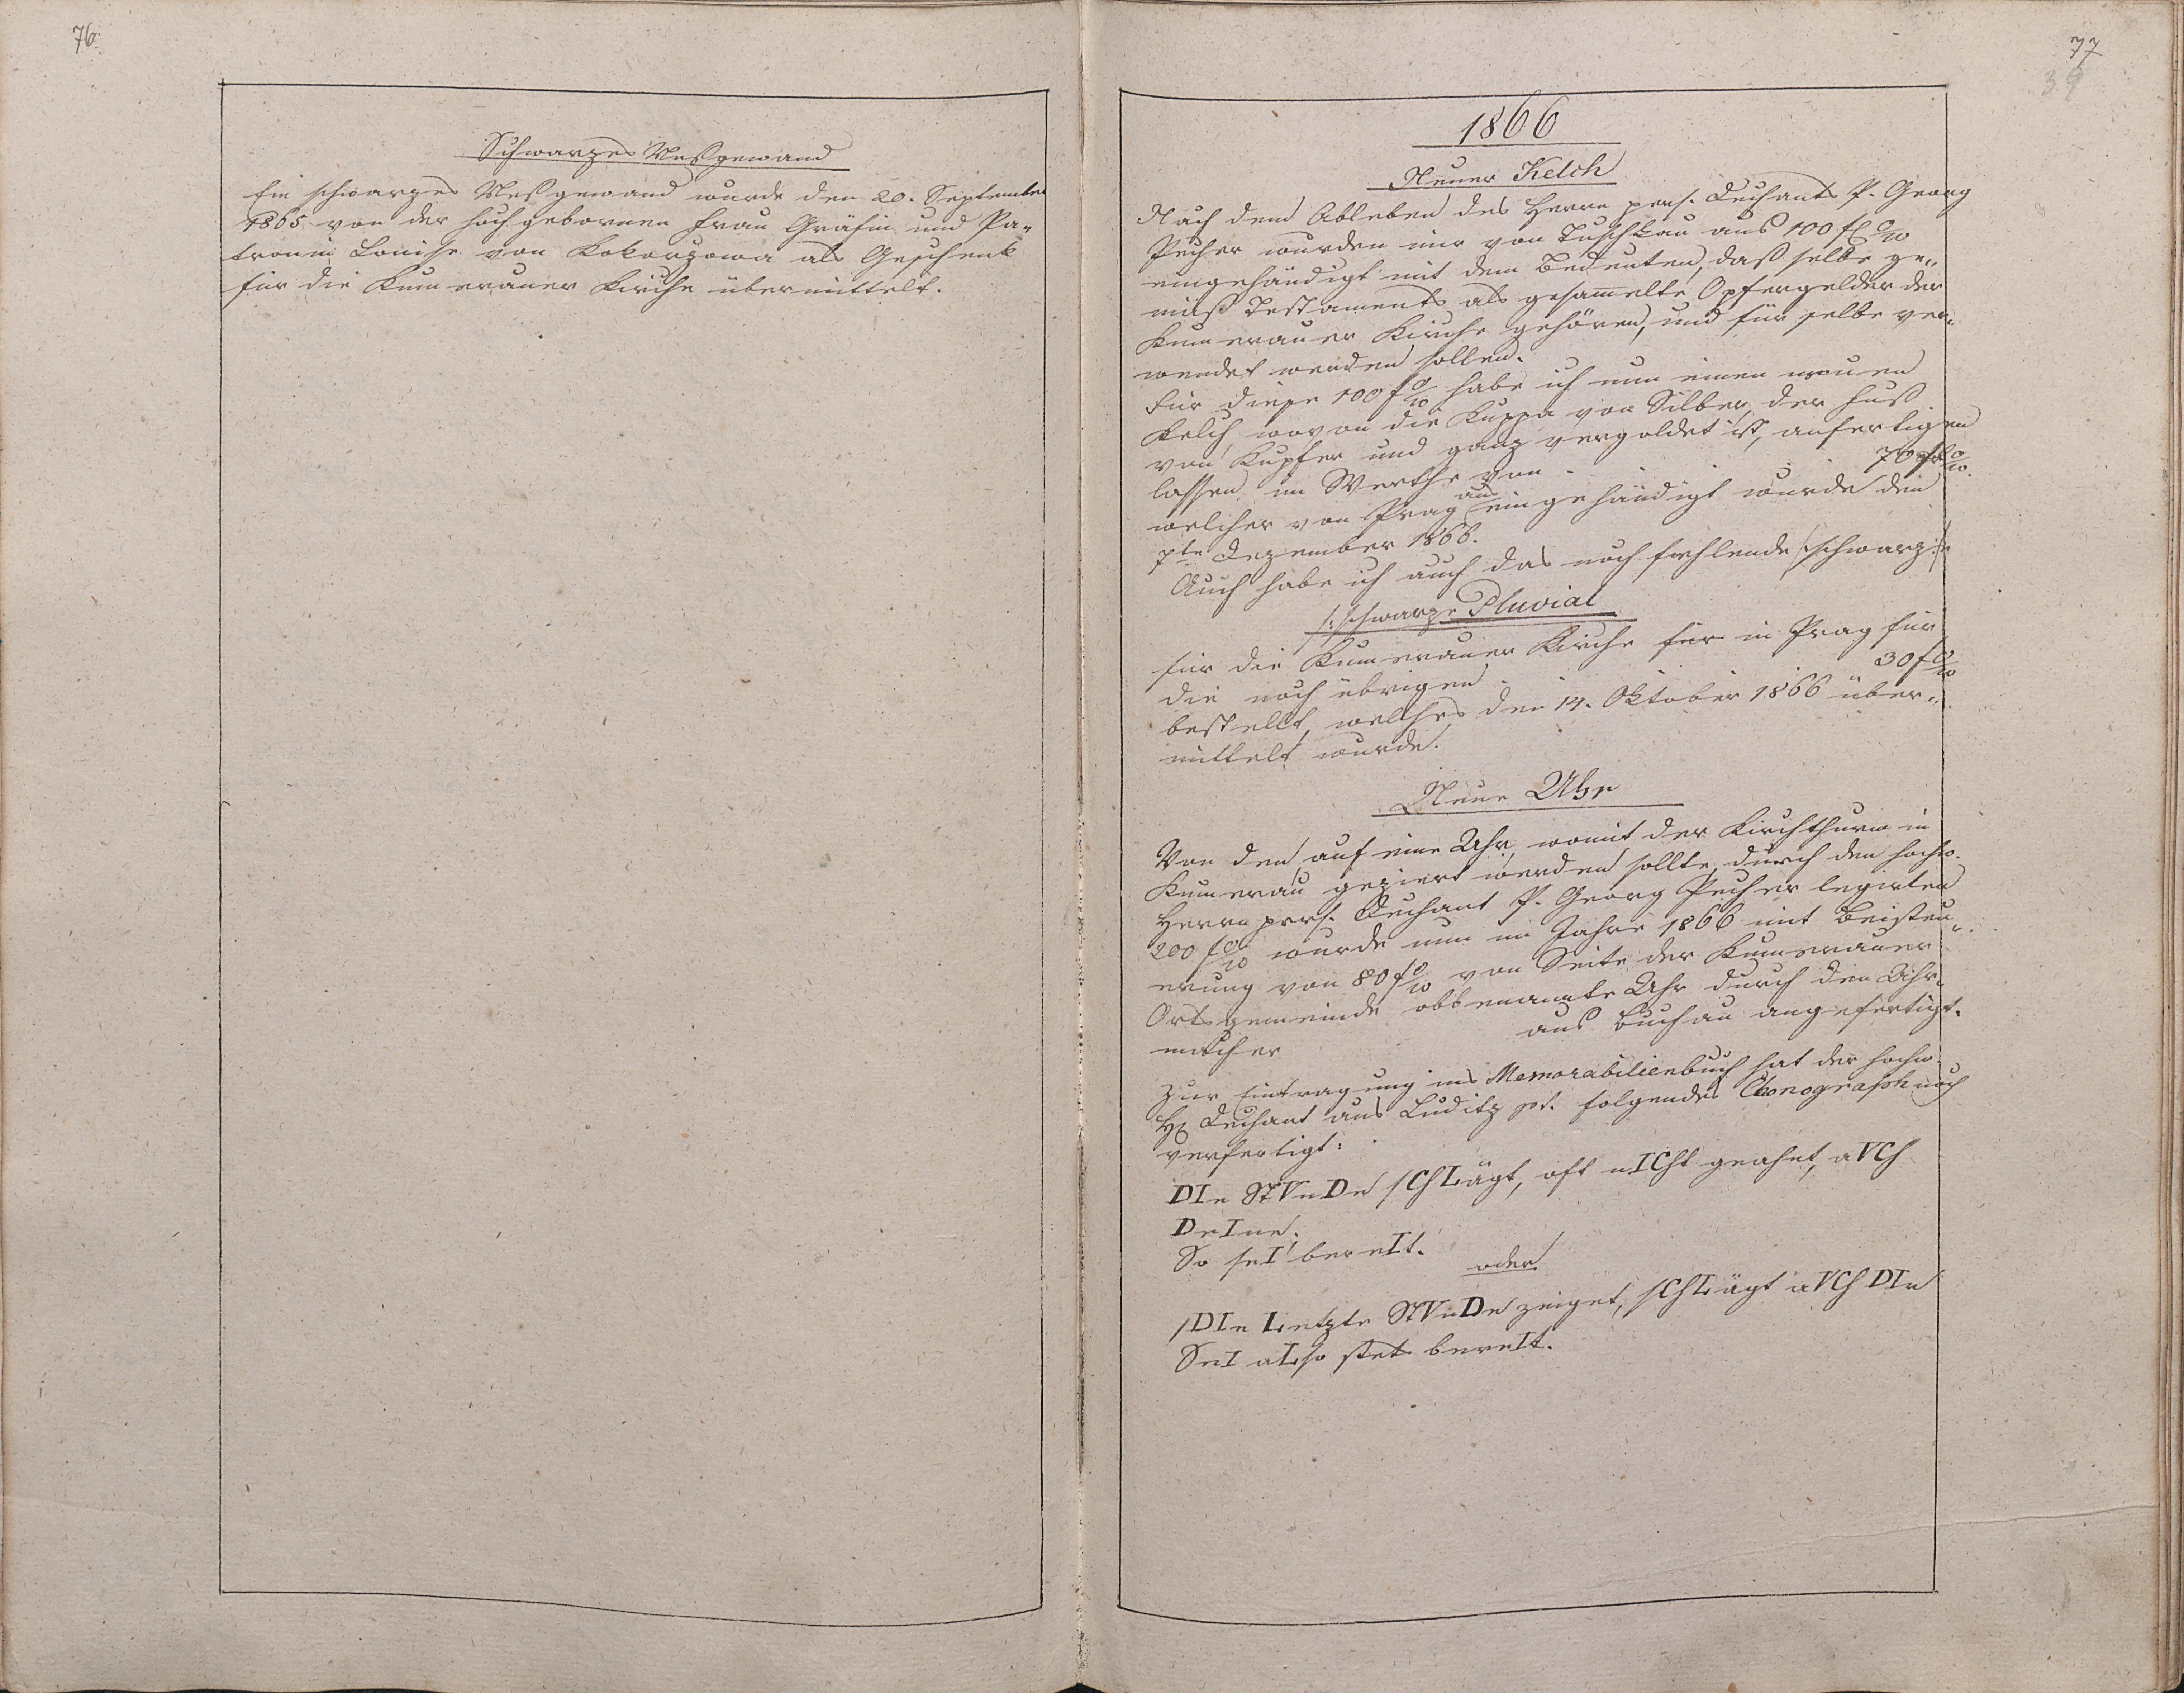 76.
Schwarzes Meßgewand
Ein schwarzes Meßgewand wurde den 20. September
1865 von der hochgebornen Frau Gräfin und Pa„
tronin Louise von Kokorzowa als Geschenk
für die Kumerauer Kirche übermittelt.
77
39
1866
Neuer Kelch
Nach dem Ableben des Herrn pens. Dechants P. Georg
Pecher wurden mir von Tuschkau aus 100 fl
eingehändigt mit dem Bedeuten, daß selbe ge„
mäß Testaments als gesam̅elte Opfergelder der
Kumerauer Kirche gehören, und für selbe ver„
wendet werden sollen.
Für diese 100 f habe ich nun einen neuen
Kelch, wovon die Kuppa von Silber, der Fuß
von Kupfer und ganz vergoldet ist, anfertigen
lassen im Werthe von . 70 f
welcher von Prag aus eingehändigt wurde den
7te Dezember 1866.
Auch habe ich auch das noch fehlende schwarze
/: schwarze Pluvial
für die Kumerauer Kirche für in Prag für
die noch übrigen . 30 f
bestellt, welches den 14. Oktober 1866 über„
mittelt wurde.
Neue Uhr
Von den auf eine Uhr, womit der Kirchthurm in
Kumerau geziert werden sollte, durch den hochw.
Herrn pens. Dechant P. Georg Pecher legirten
200 f wurde nun im Jahre 1866 mit Beisteu„
erung von 80 f von Seite der Kumerauer
Ortsgemeinde obbenannte Uhr durch den Uhr„
macher aus Buchau angefertigt.
Zur Eintragung ins Memorabilienbuch hat der hochw.
H. Dechant aus Luditz folgendes Chonograph noch
verfertigt:
DIe StVnDe sChLägt, oft nICht geahnt, aVCh
DeIne;
So seI bereIt.
oder
DIe Letzte StVnDe zeiget, sChLägt aVCh DIe
SeI aLso stets bereIt.